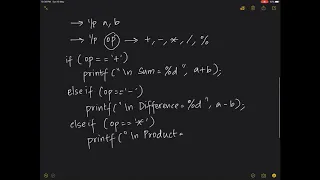 → i/p a, b
→ i/p op → +, -, *, /, %
if (op == '+')
printf("\n Sum = %d", a+b);
else if (op == '-')
printf("\n Difference = %d", a-b);
else if (op == '*')
printf("\n Product =